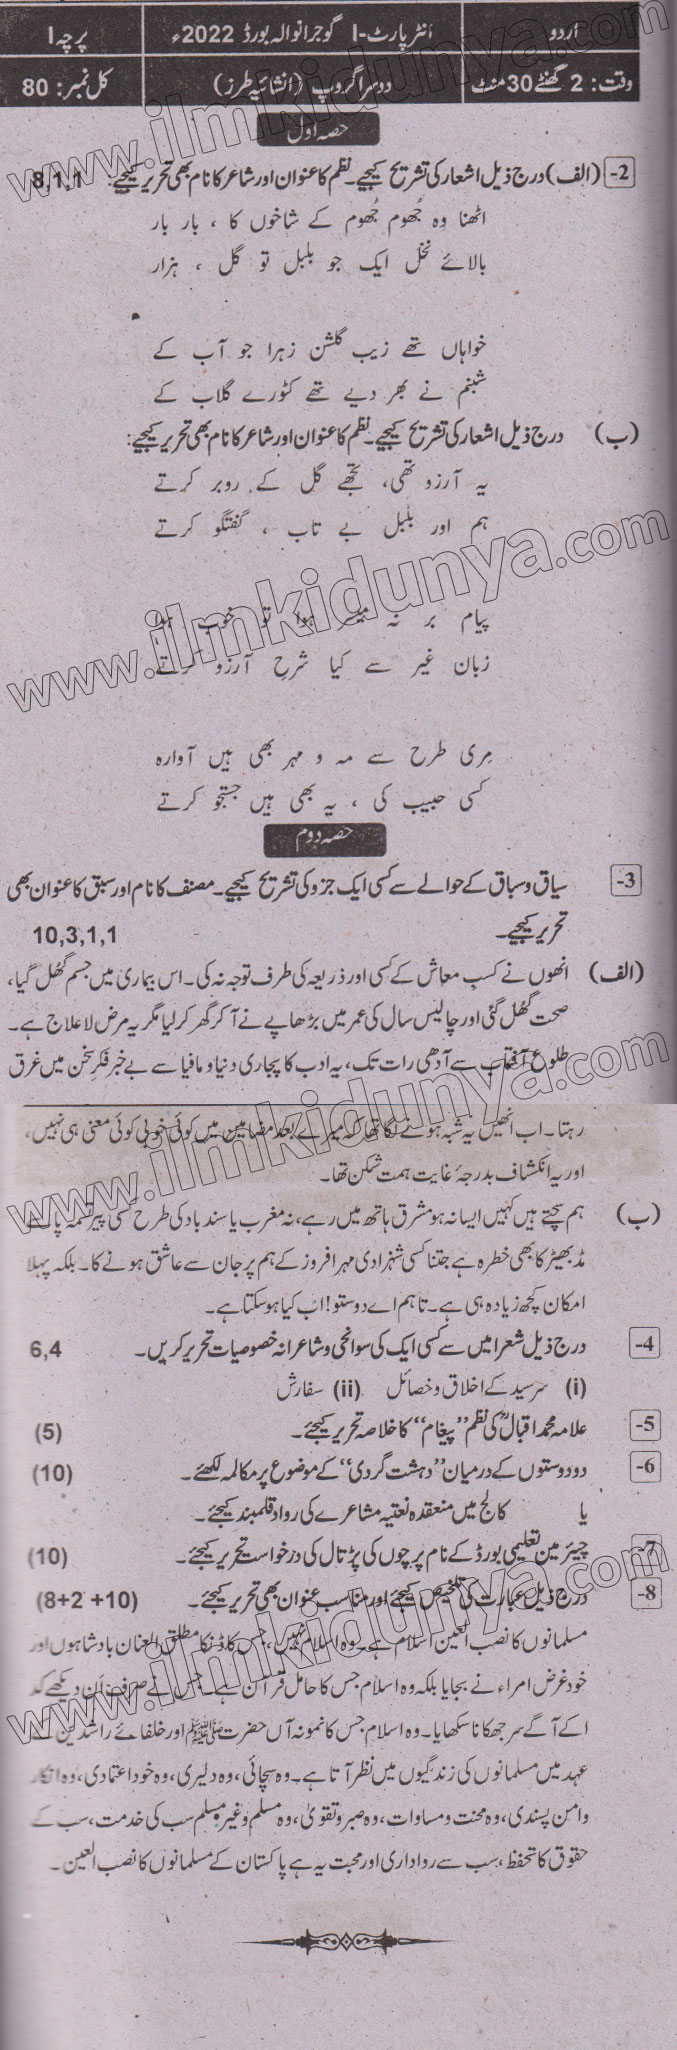 اردو انٹر پارٹ-I گوجرانوالہ بورڈ 2022ء پرچہ I
وقت: 2 گھنٹے 30 منٹ دوسرا گروپ (انشائیہ طرز) کل نمبر: 80
حصہ اول
2- (الف) درج ذیل اشعار کی تشریح کیجیے۔ نظم کا عنوان اور شاعر کا نام بھی تحریر کیجیے: 8,1,1
اٹھنا وہ جُھوم جُھوم کے شاخوں کا ، بار بار
بالائے نخل ایک جو بلبل تو گل ، ہزار
خواہاں تھے زیب گلشن زہرا جو آب کے
شبنم نے بھر دیے تھے کٹورے گلاب کے
(ب) درج ذیل اشعار کی تشریح کیجیے۔ نظم کا عنوان اور شاعر کا نام بھی تحریر کیجیے:
یہ آرزو تھی، تجھے گل کے روبر کرتے
ہم اور بلبل بے تاب ، گفتگو کرتے
پیام بر نہ میسر ہوا تو خوب ہوا
زبان غیر سے کیا شرحِ آرزو کرتے
مِری طرح سے مہ و مہر بھی ہیں آوارہ
کسی حبیب کی ، یہ بھی ہیں جستجو کرتے
حصہ دوم
3- سیاق و سباق کے حوالے سے کسی ایک جزو کی تشریح کیجیے۔ مصنف کا نام اور سبق کا عنوان بھی
تحریر کیجیے۔ 10,3,1,1
(الف) انھوں نے کسبِ معاش کے کسی اور ذریعہ کی طرف توجہ نہ کی۔ اس بیماری میں جسم گھل گیا،
صحت گھل گئی اور چالیس سال کی عمر میں بڑھاپے نے آ کر گھر کر لیا مگر یہ مرض لا علاج ہے۔
طلوع آفتاب سے آدھی رات تک، یہ ادب کا پجاری دنیا و مافیا سے بے خبر فکرِ سخن میں غرق
رہتا۔ اب انھیں یہ شبہ ہونے لگا تھا کہ میرے بعد مضامین میں کوئی خوبی کوئی معنی ہی نہیں،
اور یہ انکشاف بدرجۂ غایت ہمت شکن تھا۔
(ب) ہم سچتے ہیں کہیں ایسا نہ ہو مشرق ہاتھ میں رہے، نہ مغرب یا سندباد کی طرح کسی پیر تسمہ پا سے
مڈبھیڑ کا بھی خطرہ ہے جتنا کسی شہزادی مہر افروز کے ہم پر جان سے عاشق ہونے کا۔ بلکہ پہلا
امکان کچھ زیادہ ہی ہے۔ تاہم اے دوستو! اب کیا ہو سکتا ہے۔
4- درج ذیل شعرا میں سے کسی ایک کی سوانحی و شاعرانہ خصوصیات تحریر کریں۔ 6,4
(i) سرسید کے اخلاق و خصائل (ii) سفارش
5- علامہ محمد اقبالؒ کی نظم ”پیغام“ کا خلاصہ تحریر کیجئے۔ (5)
6- دو دوستوں کے درمیان ”دہشت گردی“ کے موضوع پر مکالمہ لکھئے۔ (10)
یا کالج میں منعقدہ نعتیہ مشاعرے کی روداد قلمبند کیجئے۔
7- چیئرمین تعلیمی بورڈ کے نام پرچوں کی پڑتال کی درخواست تحریر کیجئے۔ (10)
8- درج ذیل عبارت کی تلخیص کیجئے اور مناسب عنوان بھی تحریر کیجئے۔ (8+2 +10)
مسلمانوں کا نصب العین اسلام ہے۔ وہ اسلام نہیں، جس کا ڈنکا مطلق العنان بادشاہوں اور
خودغرض امراء نے بجایا بلکہ وہ اسلام جس کا حامل قرآن ہے۔ جس نے صرف ان دیکھے خدا
کے آگے سر جھکانا سکھایا۔ وہ اسلام جس کا نمونہ آں حضرت ﷺ اور خلفائے راشدین کے
عہد میں مسلمانوں کی زندگیوں میں نظر آتا ہے۔ وہ سچائی، وہ دلیری، وہ خود اعتمادی، وہ انکار
و امن پسندی، وہ محنت و مساوات، وہ صبر و تقویٰ، وہ مسلم و غیر مسلم سب کی خدمت، سب کے
حقوق کا تحفظ، سب سے رواداری اور محبت یہ ہے پاکستان کے مسلمانوں کا نصب العین۔
www.ilmkidunya.com
www.ilmkidunya.com
www.ilmkidunya.com
www.ilmkidunya.com